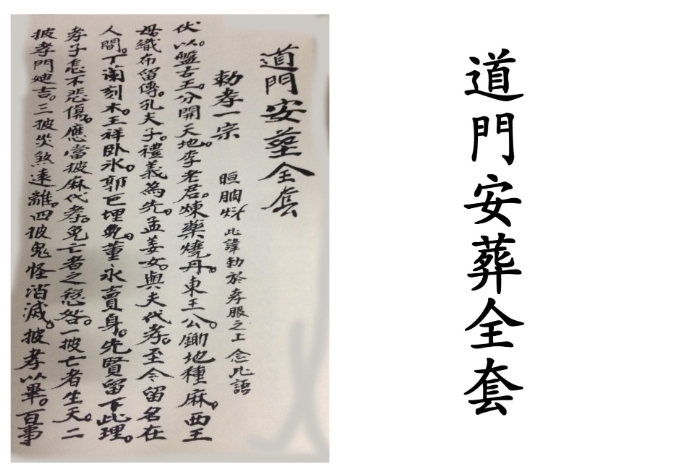 道門安塟全套
勅孝一宗 此諱勅於孝服之上 念此語
伏以盤古王。分開天地李老君。煉藥燒丹。東王公。鋤地種麻。西王
母織布留傳。孔夫子。禮義為先。孟姜女。與夫代孝。至今留名在
人間。丁蘭刻木。王祥卧氷。郭巨埋兒。董永賣身。先賢留下此理。
孝子怎不悲傷。應當披麻代孝。免亡者之愆咎。一披亡者生天。二
披孝門迪吉。三披災煞遠離。四披鬼怪消滅。披孝以畢。百事
道門安葬全套